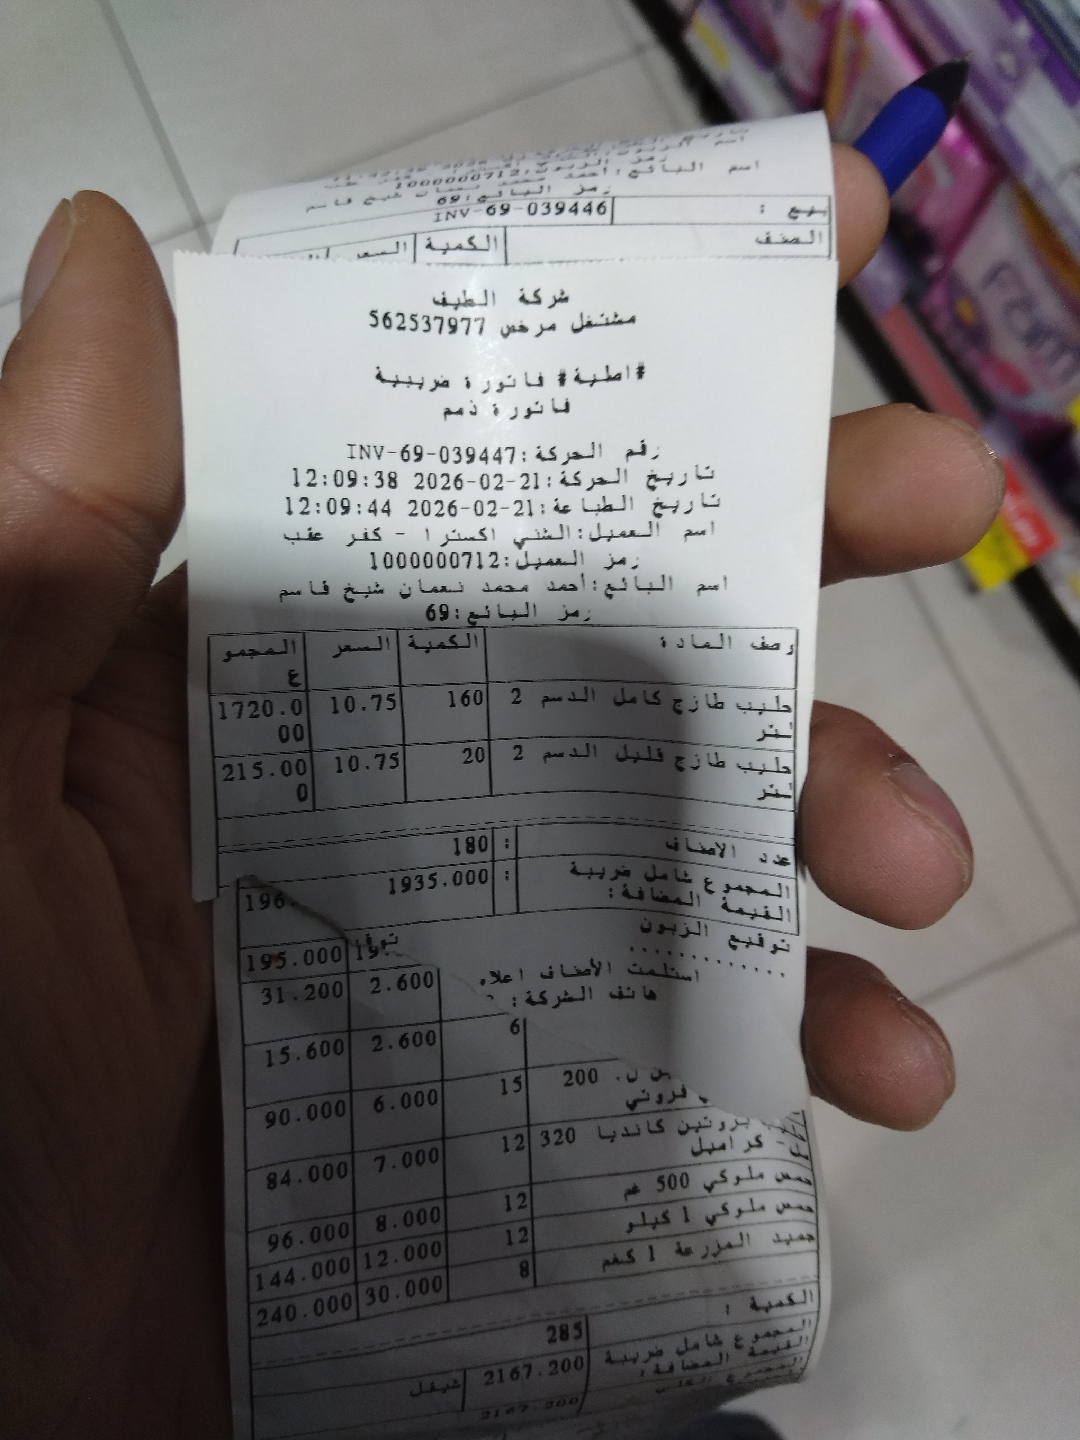 اسم البائع:أحمد محمد نعمان شيخ قاسم
رمز البائع:69
بيع : INV-69-039446
الصنف الكمية السعر
شركة الطيف
مشتغل مرخص 562537977
#اصلية# فاتورة ضريبية
فاتورة ذمم
رقم الحركة:INV-69-039447
تاريخ الحركة:21-02-2026 12:09:38
تاريخ الطباعة:21-02-2026 12:09:44
اسم العميل:الشني اكسترا - كفر عقب
رمز العميل:1000000712
اسم البائع:أحمد محمد نعمان شيخ قاسم
رمز البائع:69
وصف المادة الكمية السعر المجمو
ع
حليب طازج كامل الدسم 2 160 10.75 1720.0
لتر 00
حليب طازج قليل الدسم 2 20 10.75 215.00
لتر 0
عدد الاصناف : 180
المجموع شامل ضريبة : 1935.000
القيمة المضافة:
توقيع الزبون
............
استلمت الأصناف اعلاه
هاتف الشركة:
196.
195.000
2.600 31.200
6 2.600 15.600
200 15 6.000 90.000
بروتين كانديا 320 12 7.000 84.000
مل- كراميل
حمص ملوكي 500 غم 12 8.000 96.000
حمص ملوكي 1 كيلو 12 12.000 144.000
جميد المزرعة 1 كغم 8 30.000 240.000
الكمية : 285
المجموع شامل ضريبة 2167.200 شيقل
القيمة المضافة:
2167.200